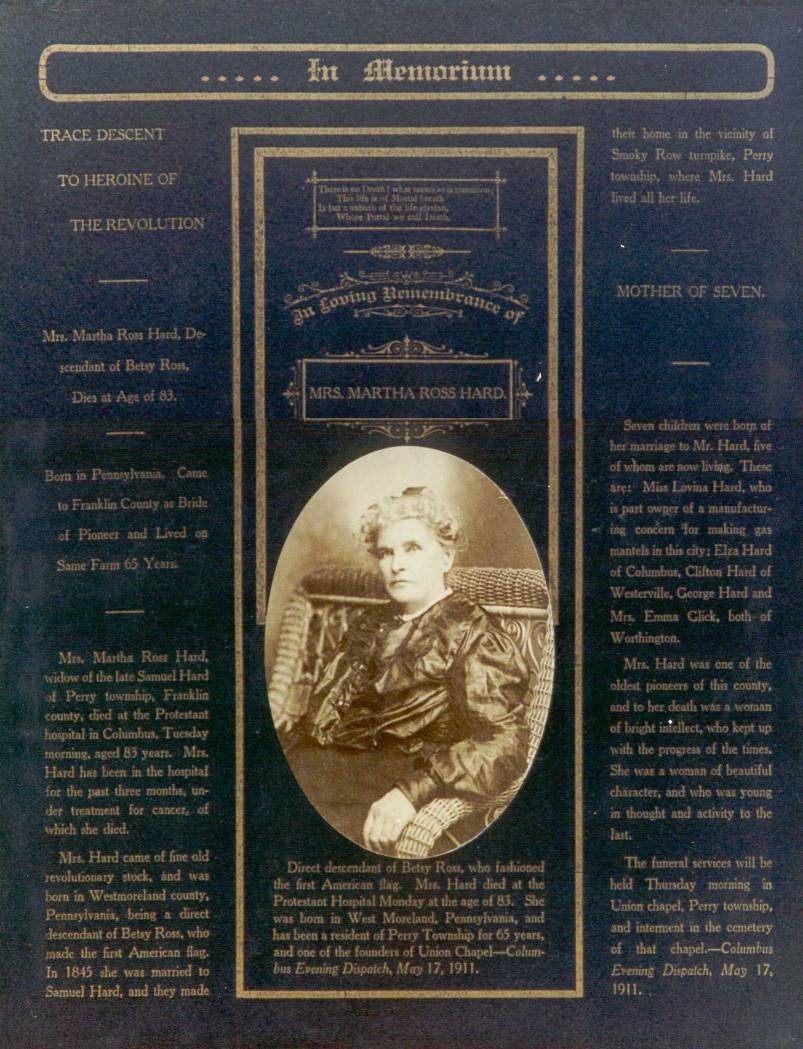 ..... In Memorium .....
TRACE DESCENT
TO HEROINE OF
THE REVOLUTION
Mrs. Martha Ross Hard, De-
scendant of Betsy Ross,
Dies at Age of 83.
Born in Pennsylvania. Came
to Franklin County as Bride
of Pioneer and Lived on
Same Farm 65 Years.
Mrs. Martha Ross Hard,
widow of the late Samuel Hard
of Perry township, Franklin
county, died at the Protestant
hospital in Columbus, Tuesday
morning, aged 83 years. Mrs.
Hard has been in the hospital
for the past three months, un-
der treatment for cancer, of
which she died.
Mrs. Hard came of fine old
revolutionary stock, and was
born in Westmoreland county,
Pennsylvania, being a direct
descendant of Betsy Ross, who
made the first American flag.
In 1845 she was married to
Samuel Hard, and they made
There is no Death! what seems so is transition;
This life is of Mortal breath
Is but a suburb of the life elysian,
Whose Portal we call Death.
In Loving Remembrance of
MRS. MARTHA ROSS HARD.
Direct descendant of Betsy Ross, who fashioned
the first American flag. Mrs. Hard died at the
Protestant Hospital Monday at the age of 83. She
was born in West Moreland, Pennsylvania, and
has been a resident of Perry Township for 65 years,
and one of the founders of Union Chapel—Colum-
bus Evening Dispatch, May 17, 1911.
their home in the vicinity of
Smoky Row turnpike, Perry
township, where Mrs. Hard
lived all her life.
MOTHER OF SEVEN.
Seven children were born of
her marriage to Mr. Hard, five
of whom are now living. These
are: Miss Lovina Hard, who
is part owner of a manufactur-
ing concern for making gas
mantels in this city; Elza Hard
of Columbus, Clifton Hard of
Westerville, George Hard and
Mrs. Emma Glick, both of
Worthington.
Mrs. Hard was one of the
oldest pioneers of this county,
and to her death was a woman
of bright intellect, who kept up
with the progress of the times.
She was a woman of beautiful
character, and who was young
in thought and activity to the
last.
The funeral services will be
held Thursday morning in
Union chapel, Perry township,
and interment in the cemetery
of that chapel.—Columbus
Evening Dispatch, May 17,
1911.